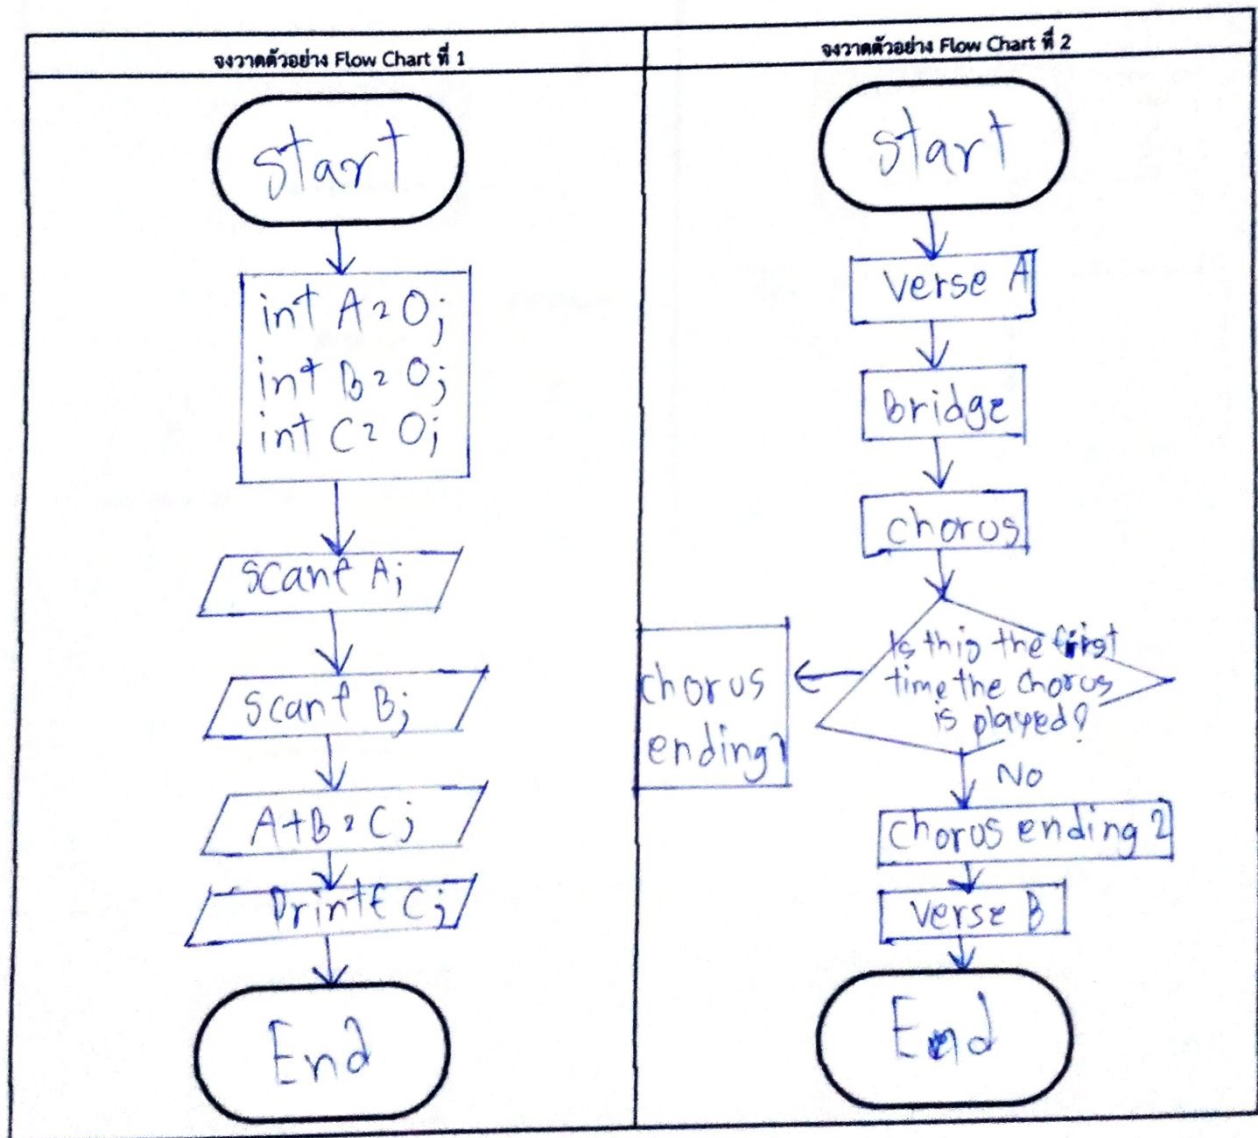 จงวาดตัวอย่าง Flow Chart ที่ 1
Start
int A = 0;
int B = 0;
int C = 0;
Scanf A;
Scanf B;
A+B = C;
Printf C;
End
จงวาดตัวอย่าง Flow Chart ที่ 2
Start
Verse A
Bridge
Chorus
Is this the first
time the Chorus
is played?
chorus
ending 1
No
Chorus ending 2
Verse B
End